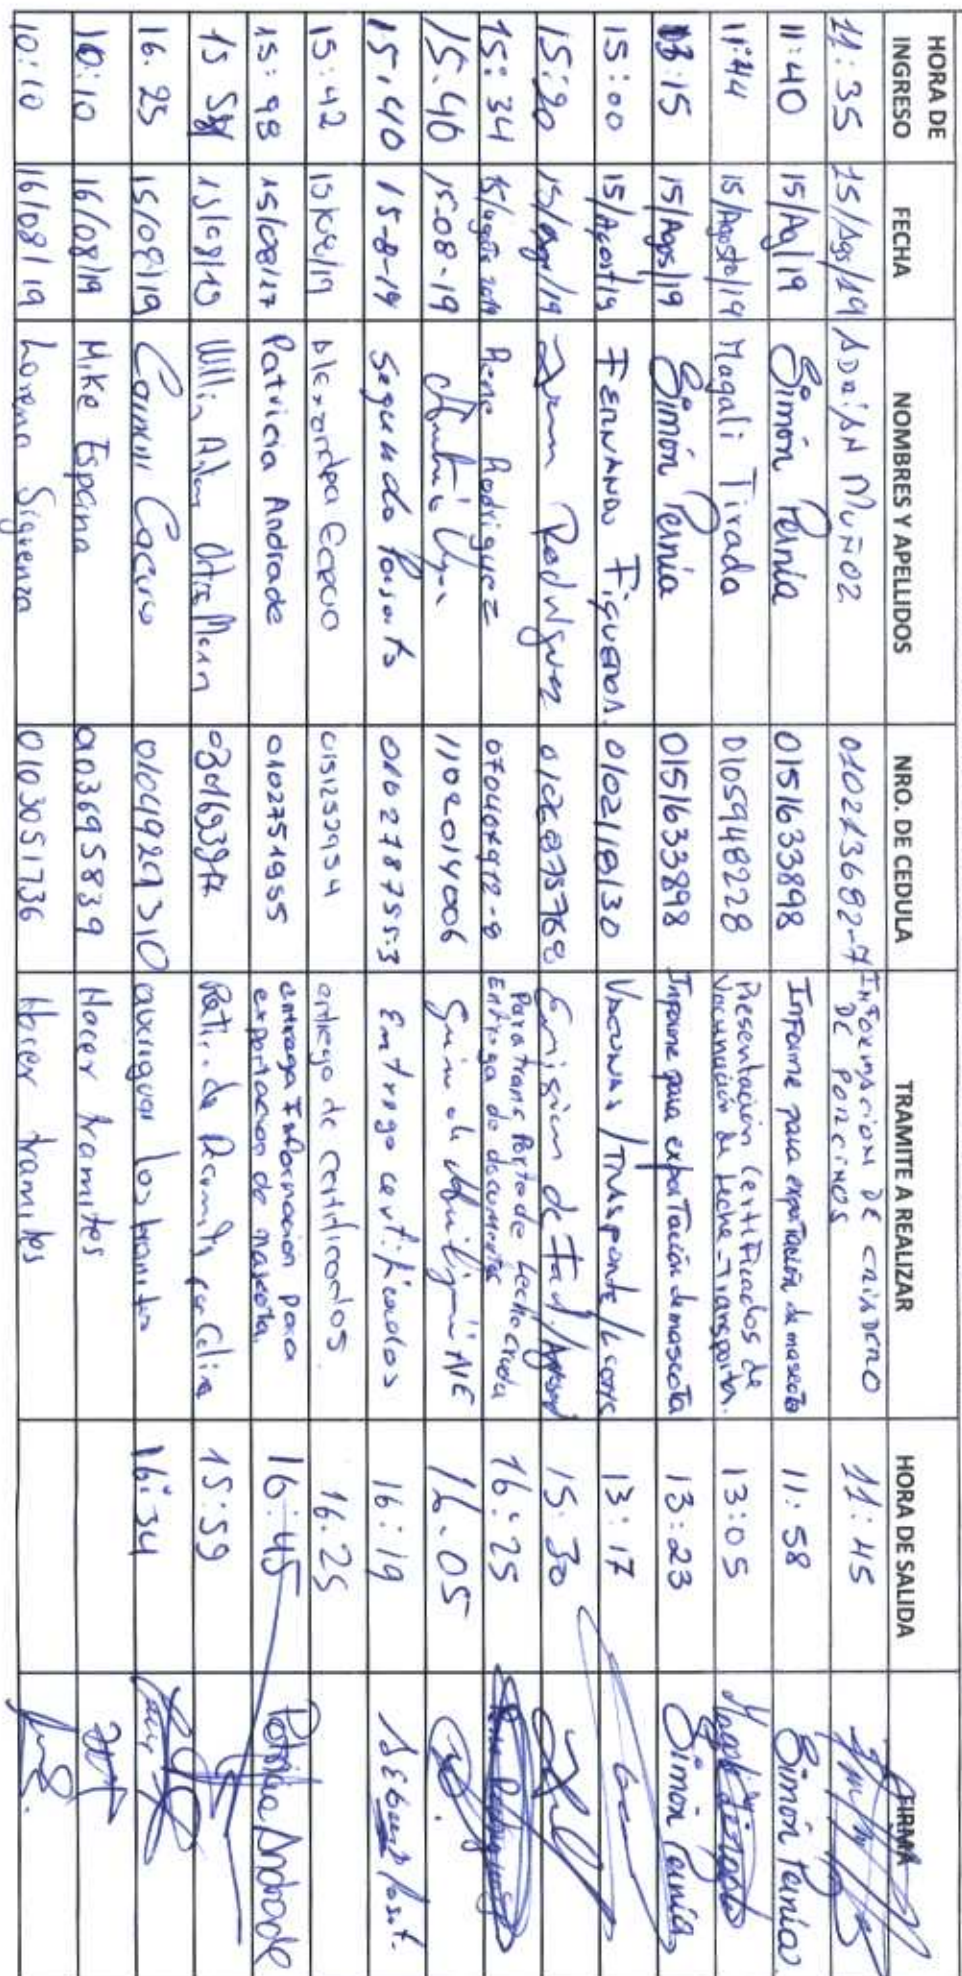 HORA DE INGRESO FECHA NOMBRES Y APELLIDOS NRO. DE CEDULA TRAMITE A REALIZAR HORA DE SALIDA FIRMA
11:35 15/Ags/19 ADRIÁN MUÑOZ 010213682-7 INFORMACION DE CRIADERO DE PORCINOS 11:45
11:40 15/Ag/19 Simón Pernía 0151633898 Informe para exportación de mascota 11:58 Simón Pernía
11:44 15/Agosto/19 Magali Tirado 0105948228 Presentación Certificados de Vacunación de Leche-Transporte. 13:05
13:15 15/Ags/19 Simón Pernía 0151633898 Informe para exportación de mascota 13:23 Simón Pernía
15:00 15/Agost/19 FERNANDO FIGUEROA. 0102118130 VACUNAS / TRANSPORTE / 13:17
15:20 15/ago/19 Rodriguez Emisión de 15:30
15:34 15/agosto 2019 Rene Rodriguez Para transportade Leche cruda Entrega de documentos 16:25
15:40 15-08-19 1102014006 16.05
15:40 15-8-19 Segundo 010278755-3 Entrego certificados 16:19
15:42 Alexandra 0151252954 entrego de certificados. 16.25
15:48 15/08/17 Patricia Andrade 0102751955 entrega Informacion para exportacion de mascota. 16:45 Patricia Andrade
15 58 Retiro de 15:59
16.25 15/08/19 0104929310 averiguar los tramites 16:34
10:10 16/08/19 Mike Espana 0103695839 Hacer tramites
10:10 16/08/19 Lorena Siguenza 0103051736 Hacer tramites